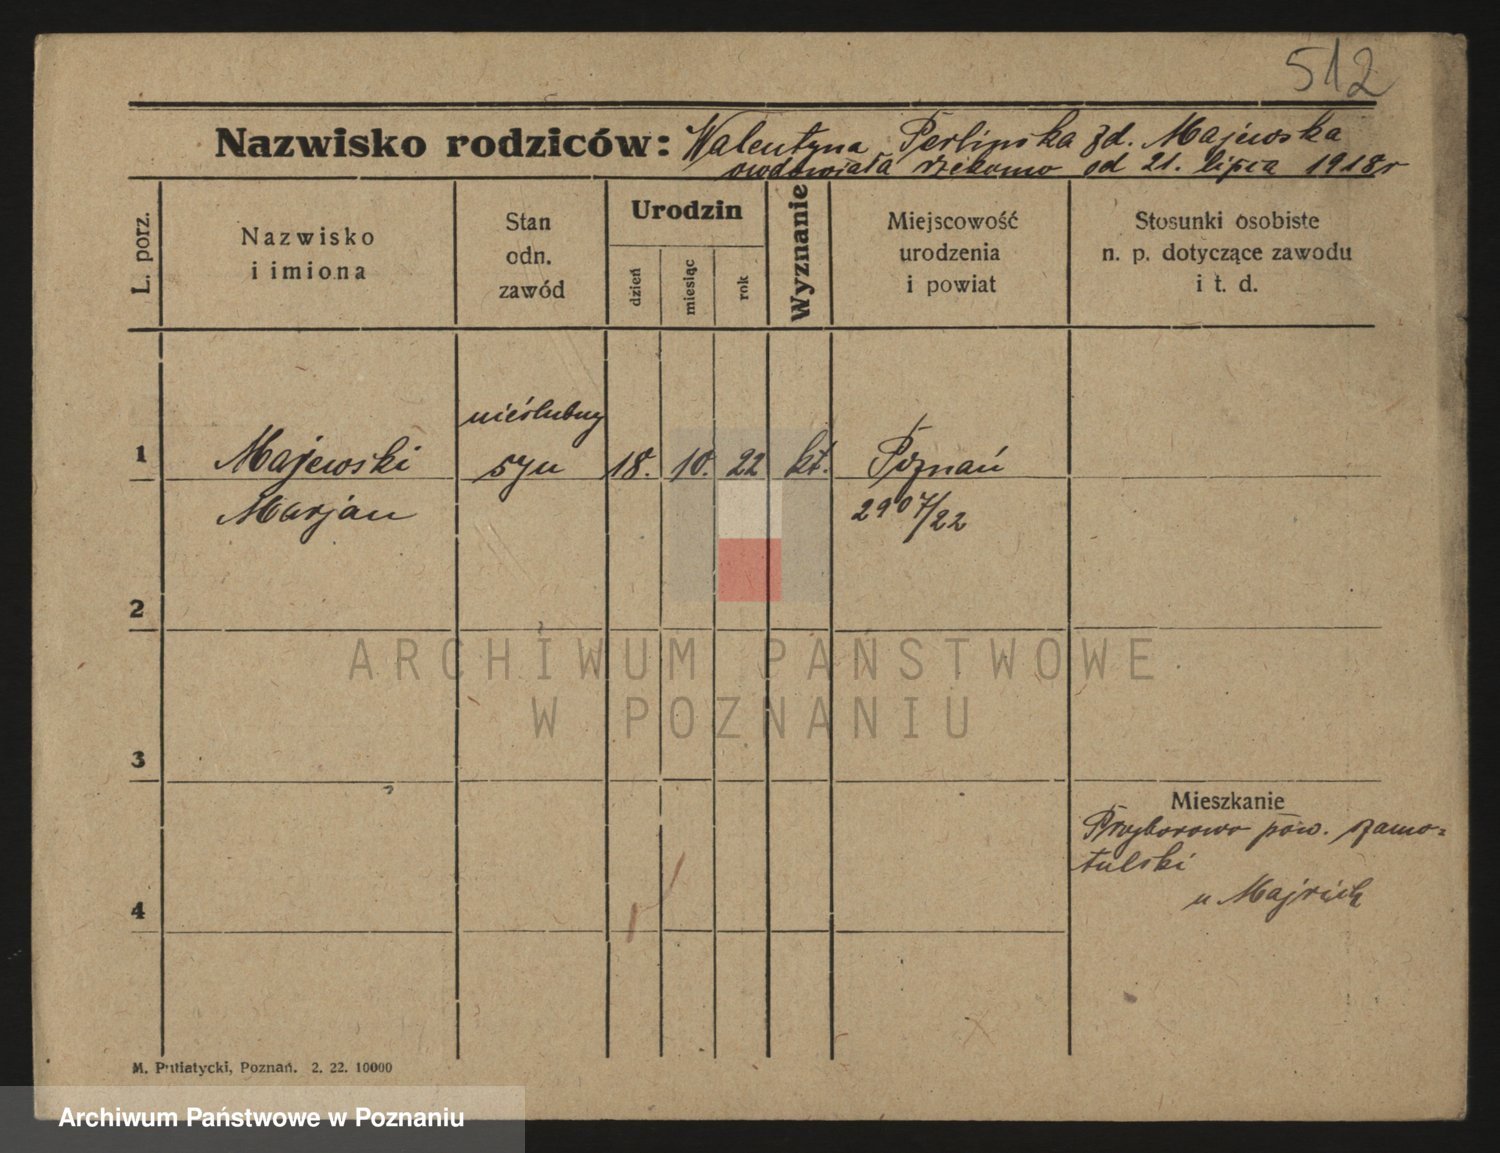 512
Nazwisko rodziców: Walentyna Perlińska zd. Majewska
owdowiała rzekomo od 21. lipca 1918 r
L. porz.
Nazwisko
i imiona
Stan
odn.
zawód
Urodzin
dzień
miesiąc
rok
Wyznanie
Miejscowość
urodzenia
i powiat
Stosunki osobiste
n. p. dotyczące zawodu
i t. d.
nieślubny
1 Majewski syn 18. 10. 22 kt. Poznań
Marjan 2907/22
2
ARCHIWUM PAŃSTWOWE
W POZNANIU
3
Mieszkanie
Przyborowo pow. szamo-
tulski
u
4
M. Putiatycki, Poznań. 2. 22. 10000
Archiwum Państwowe w Poznaniu